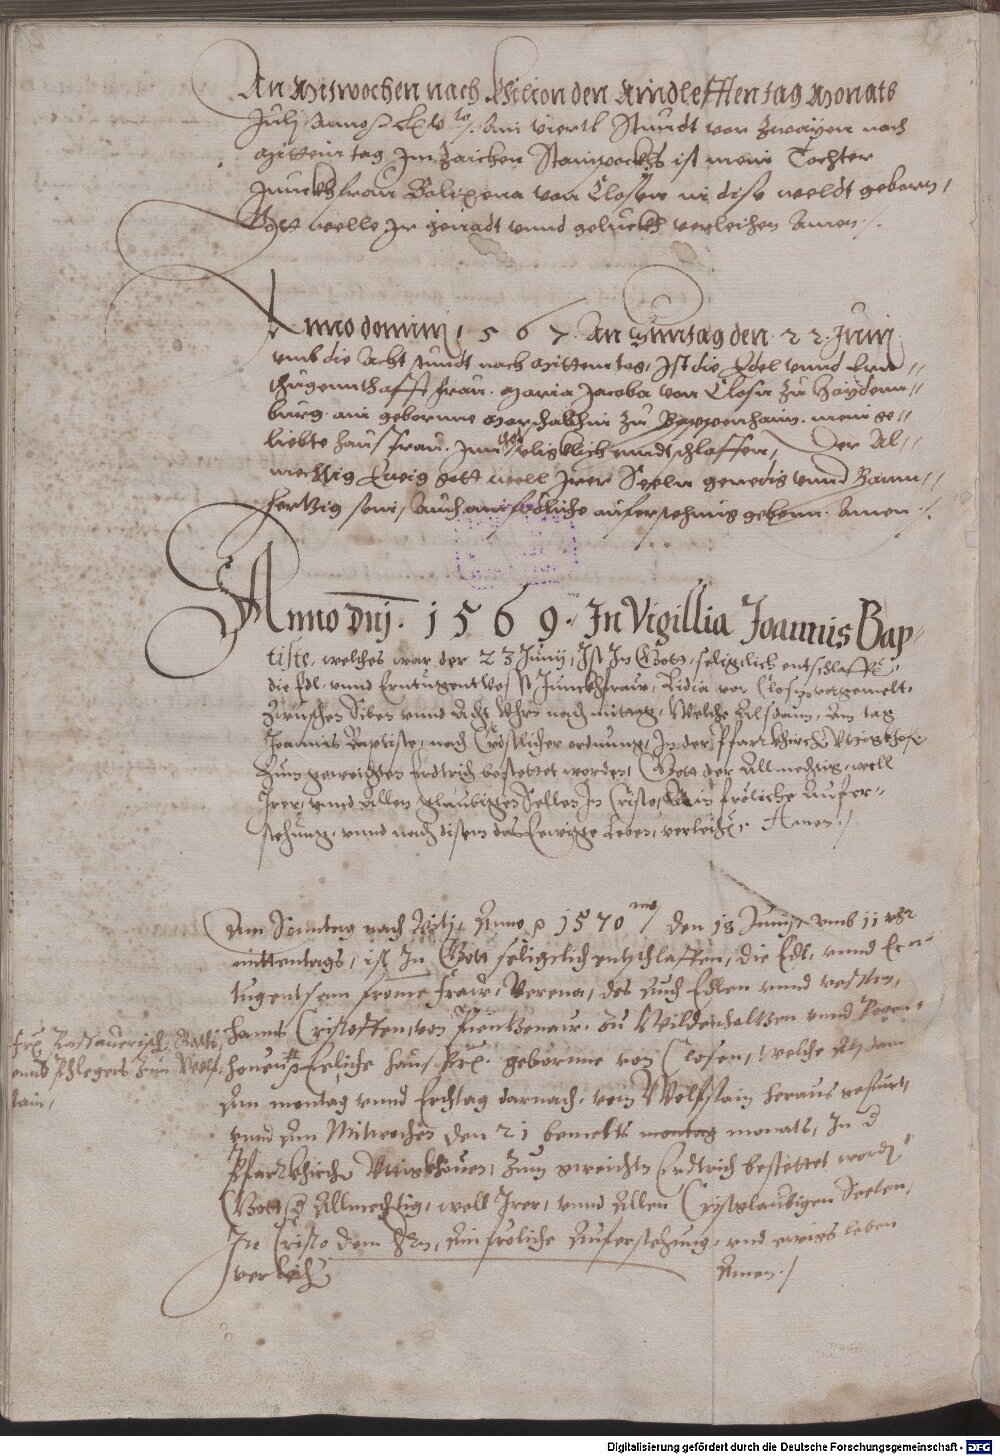 An Mitwochen nach Kiliani den Aindlefften tag Monats
Julj Anno LXV Am viertl Stundt vor Zwayen nach
Mittem tag Im Zaichen Stainpockhs ist mein Tochter
Junckhfraw Polixena von Closen in dise weldt geborn,
Gott welle Ir genadt vnnd gelückh verleichen Amen.
Anno domini 1567 An Suntag den 22 Junij
vmb die Acht stundt nach Mittemtag, Ist die Edel vnnd Ern
thugenthafft fraw Maria Jacoba von Closn zu Haydenn
burg ain geborne Marschalckhin zu Pappenhaim mein ge
liebte hausfraw Inn got seligklich enndtschlaffen, Der Al
mechtig Ewig gott well Irer Seeln genedig vnnd Barm
hertzig sein, Auch ain fröliche auferstehung geben. Amen.
Anno Dnj. 1569. In Vigillia Joannis Bap
tiste, welches war der 23 Junij, Ist In Gott seligclich entschlaffen
die Edl vnnd Erntugent Junckhfraw Lidia von Closen vorgemelt,
Zwischen Siben vnnd Acht Vhrn nach mittag, Welche Alsdann, Am tag
Joannis Baptiste, nach Cristlicher ordnung, In der Pfarrkhirch
Zum geweichten Erdtrich bestettet worden, Gott der Allmechtig well
Irer, vnnd Allen glaubigen Sellen In Cristo, Ain fröliche Aufer
stehung, vnnd nach disem das Ewige Leben, verleichen. Amen.
Am Sonntag nach Viti, Anno 1570 den 18 Junij, vmb 11 vhr
mittentags, ist In Gott seligclich entschlaffen, die Edl vnnd Ern
tugentsam frome fraw, Verena, des Auch Edlen vnnd vessten,
Hanns Cristoffen, von Pientzenaw, zu Wildenholtzen vnnd
Eeliche haus geborne von Closen, welche Alsdann
Am montag vnnd Erchtag darnach, vom Wolfstain heraus gefiert,
vnnd Am Mitwochen den 21 bemelts monats, In d
Pfarrkhirch zum geweichten Erdtrich bestettet worden
Gott d Allmechtig, well Irer, vnnd Allen Cristglaubigen Seelen,
In Cristo dem Hern, Ain fröliche Auferstehung, vnd ewigs leben
verleich Amen.
Passauerisch Raths
vnnd Pflegers Zum Wolf
stain,
Digitalisierung gefördert durch die Deutsche Forschungsgemeinschaft - DFG